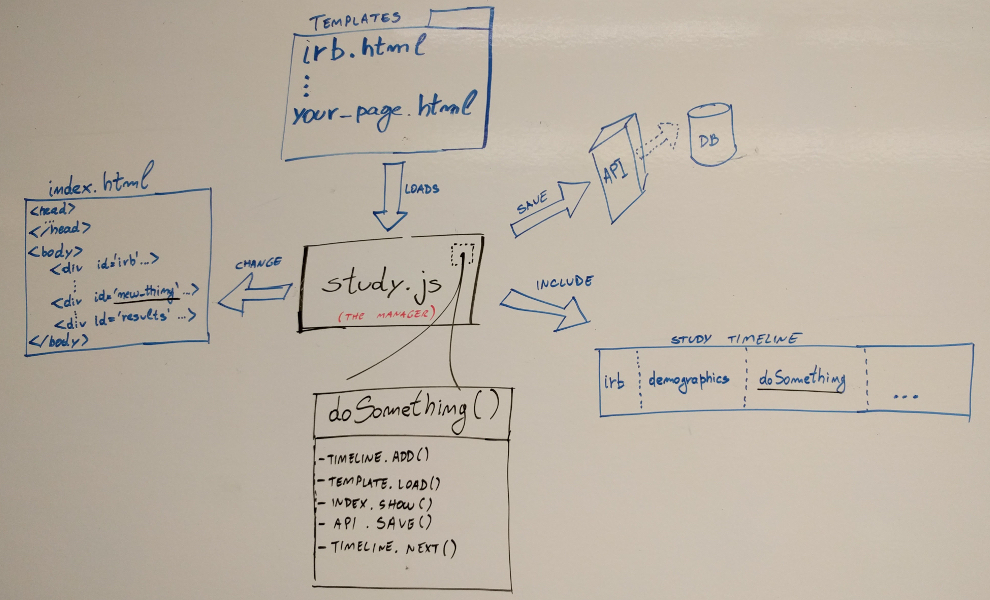 TEMPLATES
irb.html
⋮
your_page.html
LOADS
index.html
<head>
...
</head>
<body>
<div id='irb'...>
⋮
<div id='new_thing'...>
⋮
<div id='results'...>
</body>
CHANGE
study.js
(THE MANAGER)
SAVE
API
DB
INCLUDE
STUDY TIMELINE
irb demographics doSomething ...
doSomething()
- TIMELINE.ADD()
- TEMPLATE.LOAD()
- INDEX.SHOW()
- API.SAVE()
- TIMELINE.NEXT()